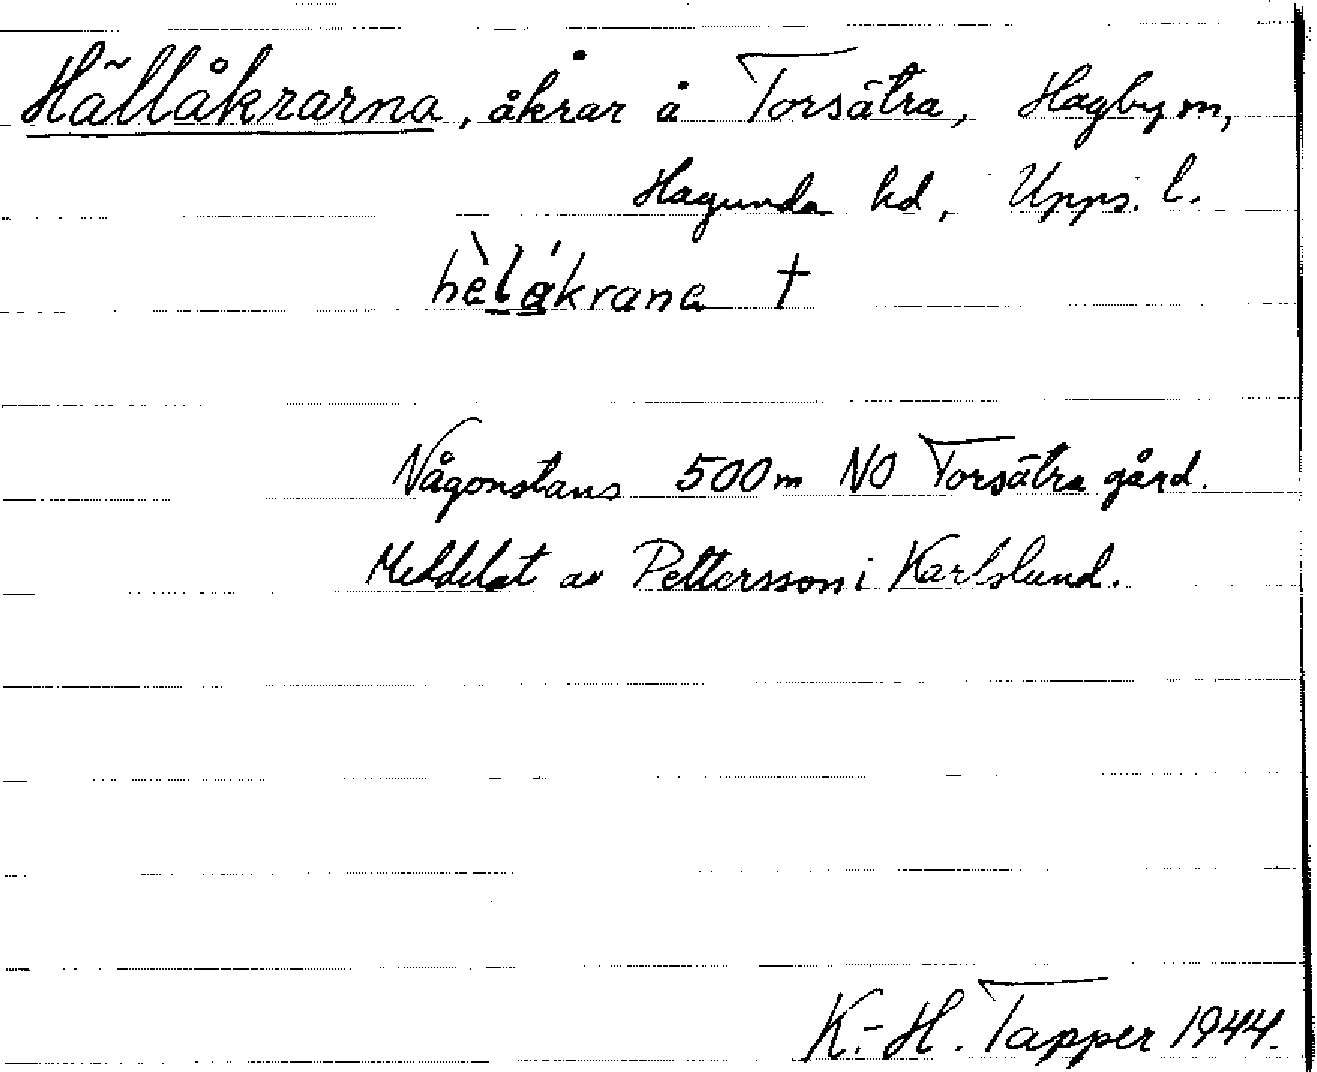 Hällåkrarna, åkrar å Torsätra, Hagby sn,
Hagunda hd, Upps. l.
hèlåkrana †
Någonstans 500 m NO Torsätra gård.
Meddelat av Pettersson i Karlslund.
K.-H. Tapper 1944.